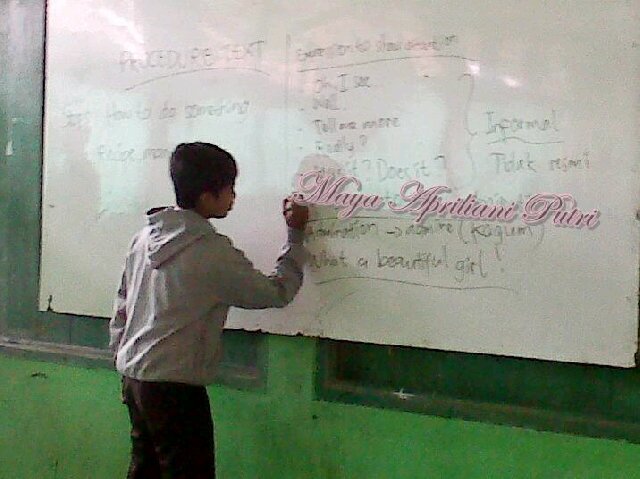 PROCEDURE TEXT
How to do something
Expression to show attention
Oh, I see
Well..
Tell me more
Really?
Is it? Does it?
Informal
Tidak resmi
Maya Apriliani Putri
Admiration → admire (Kagum)
What a beautiful girl!